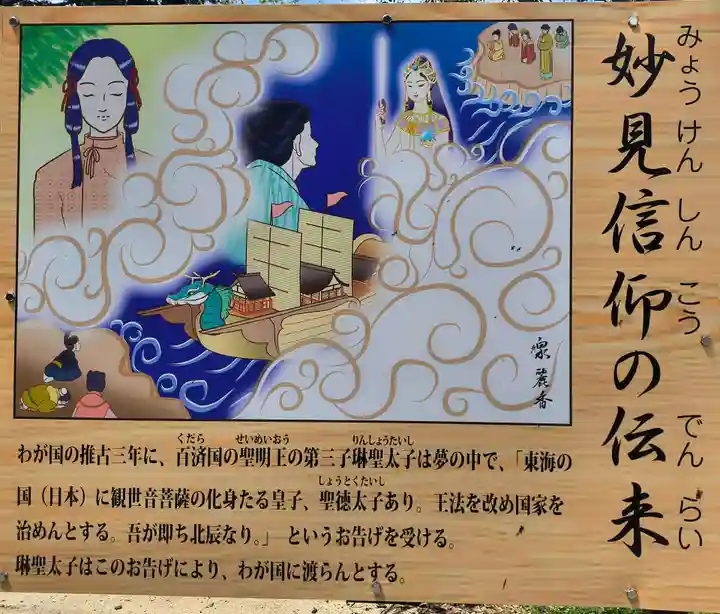 妙見信仰の伝来
みょうけんしんこうでんらい
わが国の推古三年に、百済国の聖明王の第三子琳聖太子は夢の中で、「東海の
くだら せいめいおう りんしょうたいし
国（日本）に観世音菩薩の化身たる皇子、聖徳太子あり。王法を改め国家を
しょうとくたいし
治めんとする。吾が即ち北辰なり。」 というお告げを受ける。
琳聖太子はこのお告げにより、わが国に渡らんとする。